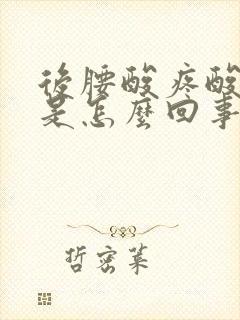 後腰酸疼酸
是怎麼回事
哲密莱